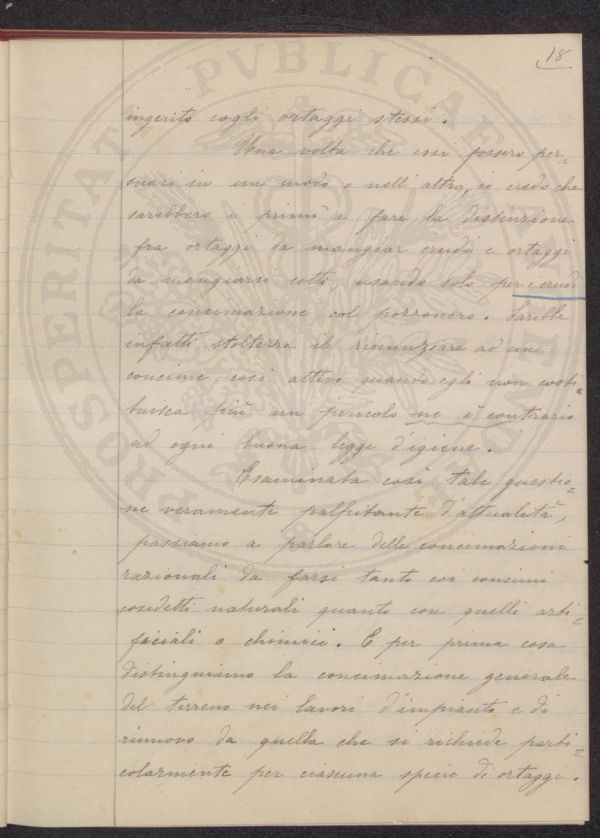 18
ingerito cogli ortaggi stessi.
Una volta che essi fossero per=
suasi in un modo o nell'altro, io credo che
sarebbero i primi a fare la distinzione
fra ortaggi da mangiar crudi e ortaggi
da mangiarsi cotti, usando solo per i crudi
la concimazione col pozzonero. Sarebbe
infatti stoltezza il rinunziare ad un
concime così attivo quando egli non costi=
tuisca più un pericolo ne è contrario
ad ogni buona legge d'igiene.
Esaminata così tale questio=
ne veramente palpitante d'attualità,
passiamo a parlare delle concimazioni
razionali da farsi tanto coi concimi
cosidetti naturali quanto con quelli arti=
ficiali o chimici. E per prima cosa
distinguiamo la concimazione generale
del terreno nei lavori d'impianto e di
rinnovo da quella che si richiede parti=
colarmente per ciascuna specie di ortaggi.
PROSPERITATI PVBLICAE AVGENDAE